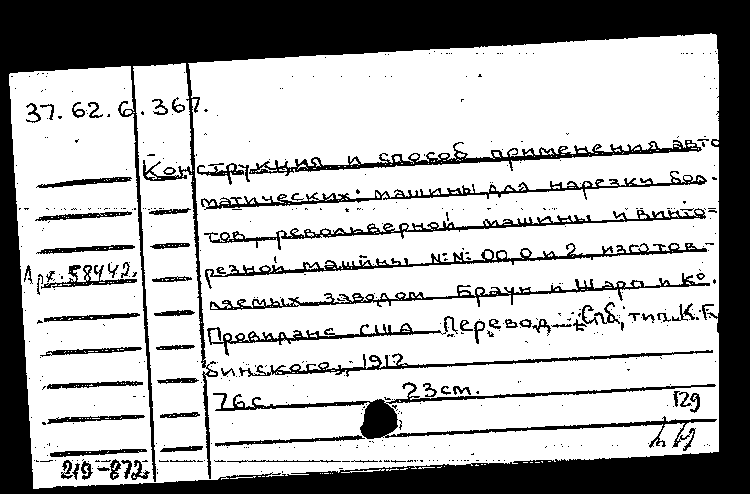 37.62.6.367.
Конструкция и способ применения авто
матических: машины для нарезки бол-
тов, револьверной машины и винто-
резной машины №№ 00, 0 и 2, изготов-
ляемых заводом Браун и Шарп и К°.
Арх. 58442.
Провиданс США Перевод. Спб, тип. К.Б
бинского, 1912
76 с. 23 см.
129
219-872.